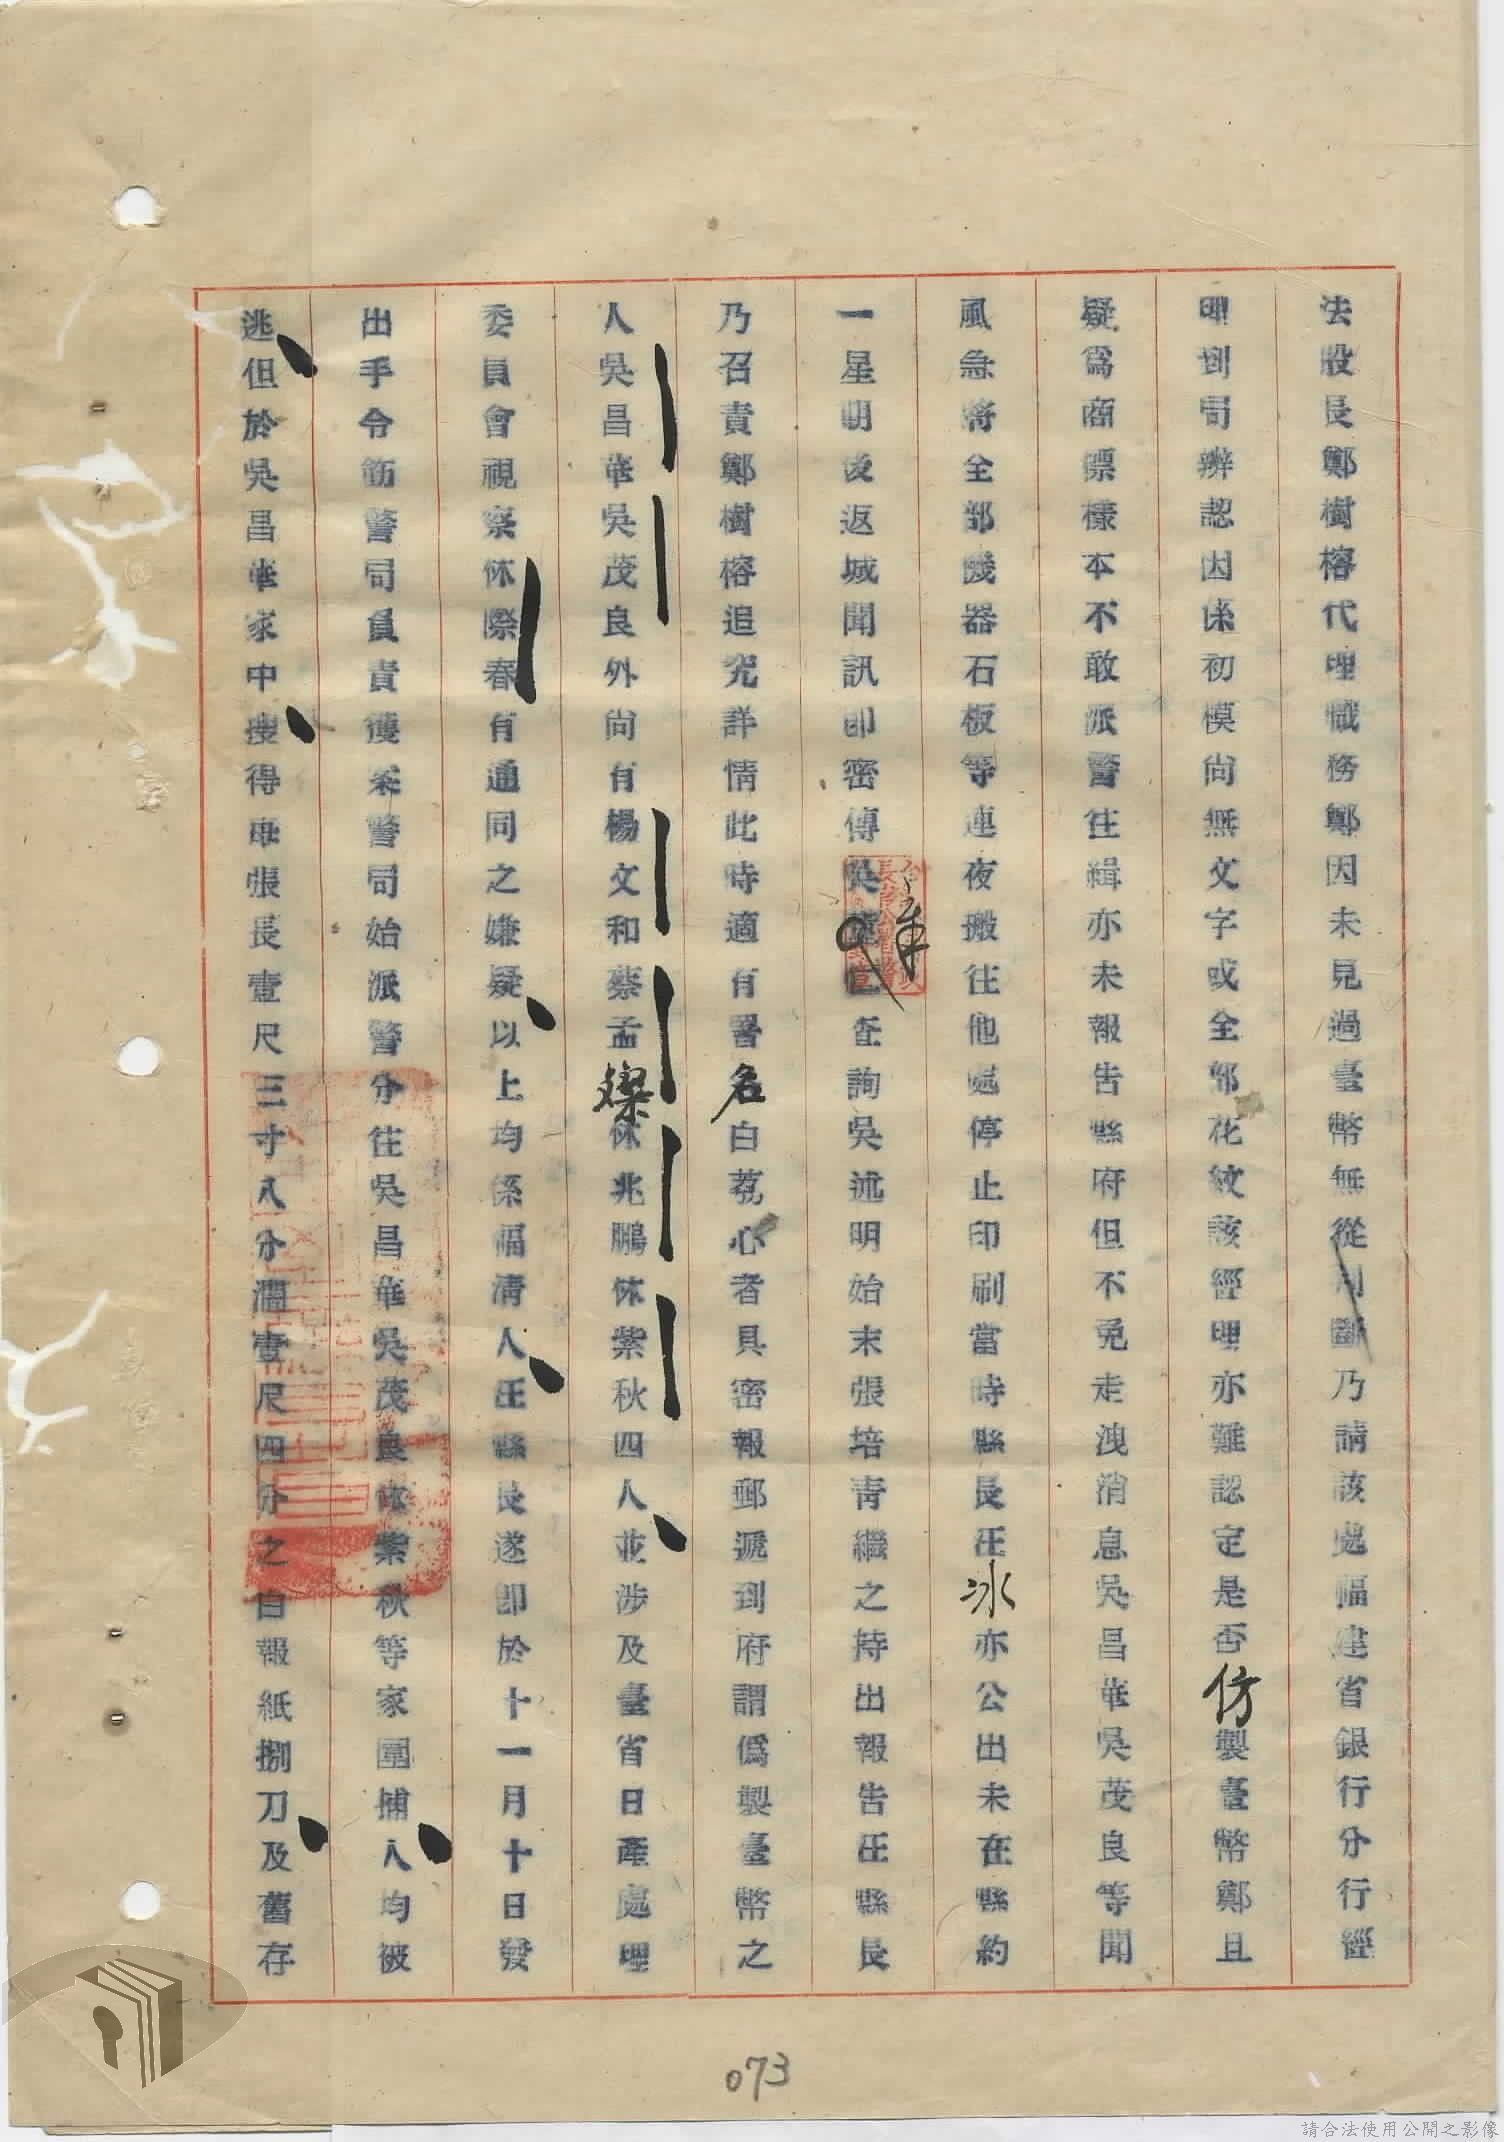 法股長鄭樹榕代理職務鄭因未見過臺幣無從判斷乃請該處福建省銀行分行經
理到司辨認因係初模尚無文字或全部花紋該經理亦難認定是否仿製臺幣鄭且
疑爲商標樣本不敢派警往緝亦未報告縣府但不免走洩消息吳昌華吳茂良等聞
風急將全部機器石板等連夜搬往他處停止印刷當時縣長汪冰亦公出未在縣約
一星期後返城聞訊即密傳吳 查詢吳述明始末張培青繼之持出報告汪縣長
乃召責鄭樹榕追究詳情此時適有署名白荔心者具密報郵遞到府謂僞製臺幣之
人吳昌華吳茂良外尚有楊文和蔡孟燦林兆鵬林紫秋四人並涉及臺省日產處理
委員會視察林際春有通同之嫌疑以上均係福清人汪縣長遂即於十一月十日發
出手令飭警司負責獲案警司始派警分往吳昌華吳茂良林紫秋等家圍捕人均被
逃但於吳昌華家中搜得每張長壹尺三寸八分濶壹尺四分之白報紙捌刀及舊存
073
請合法使用公開之影像